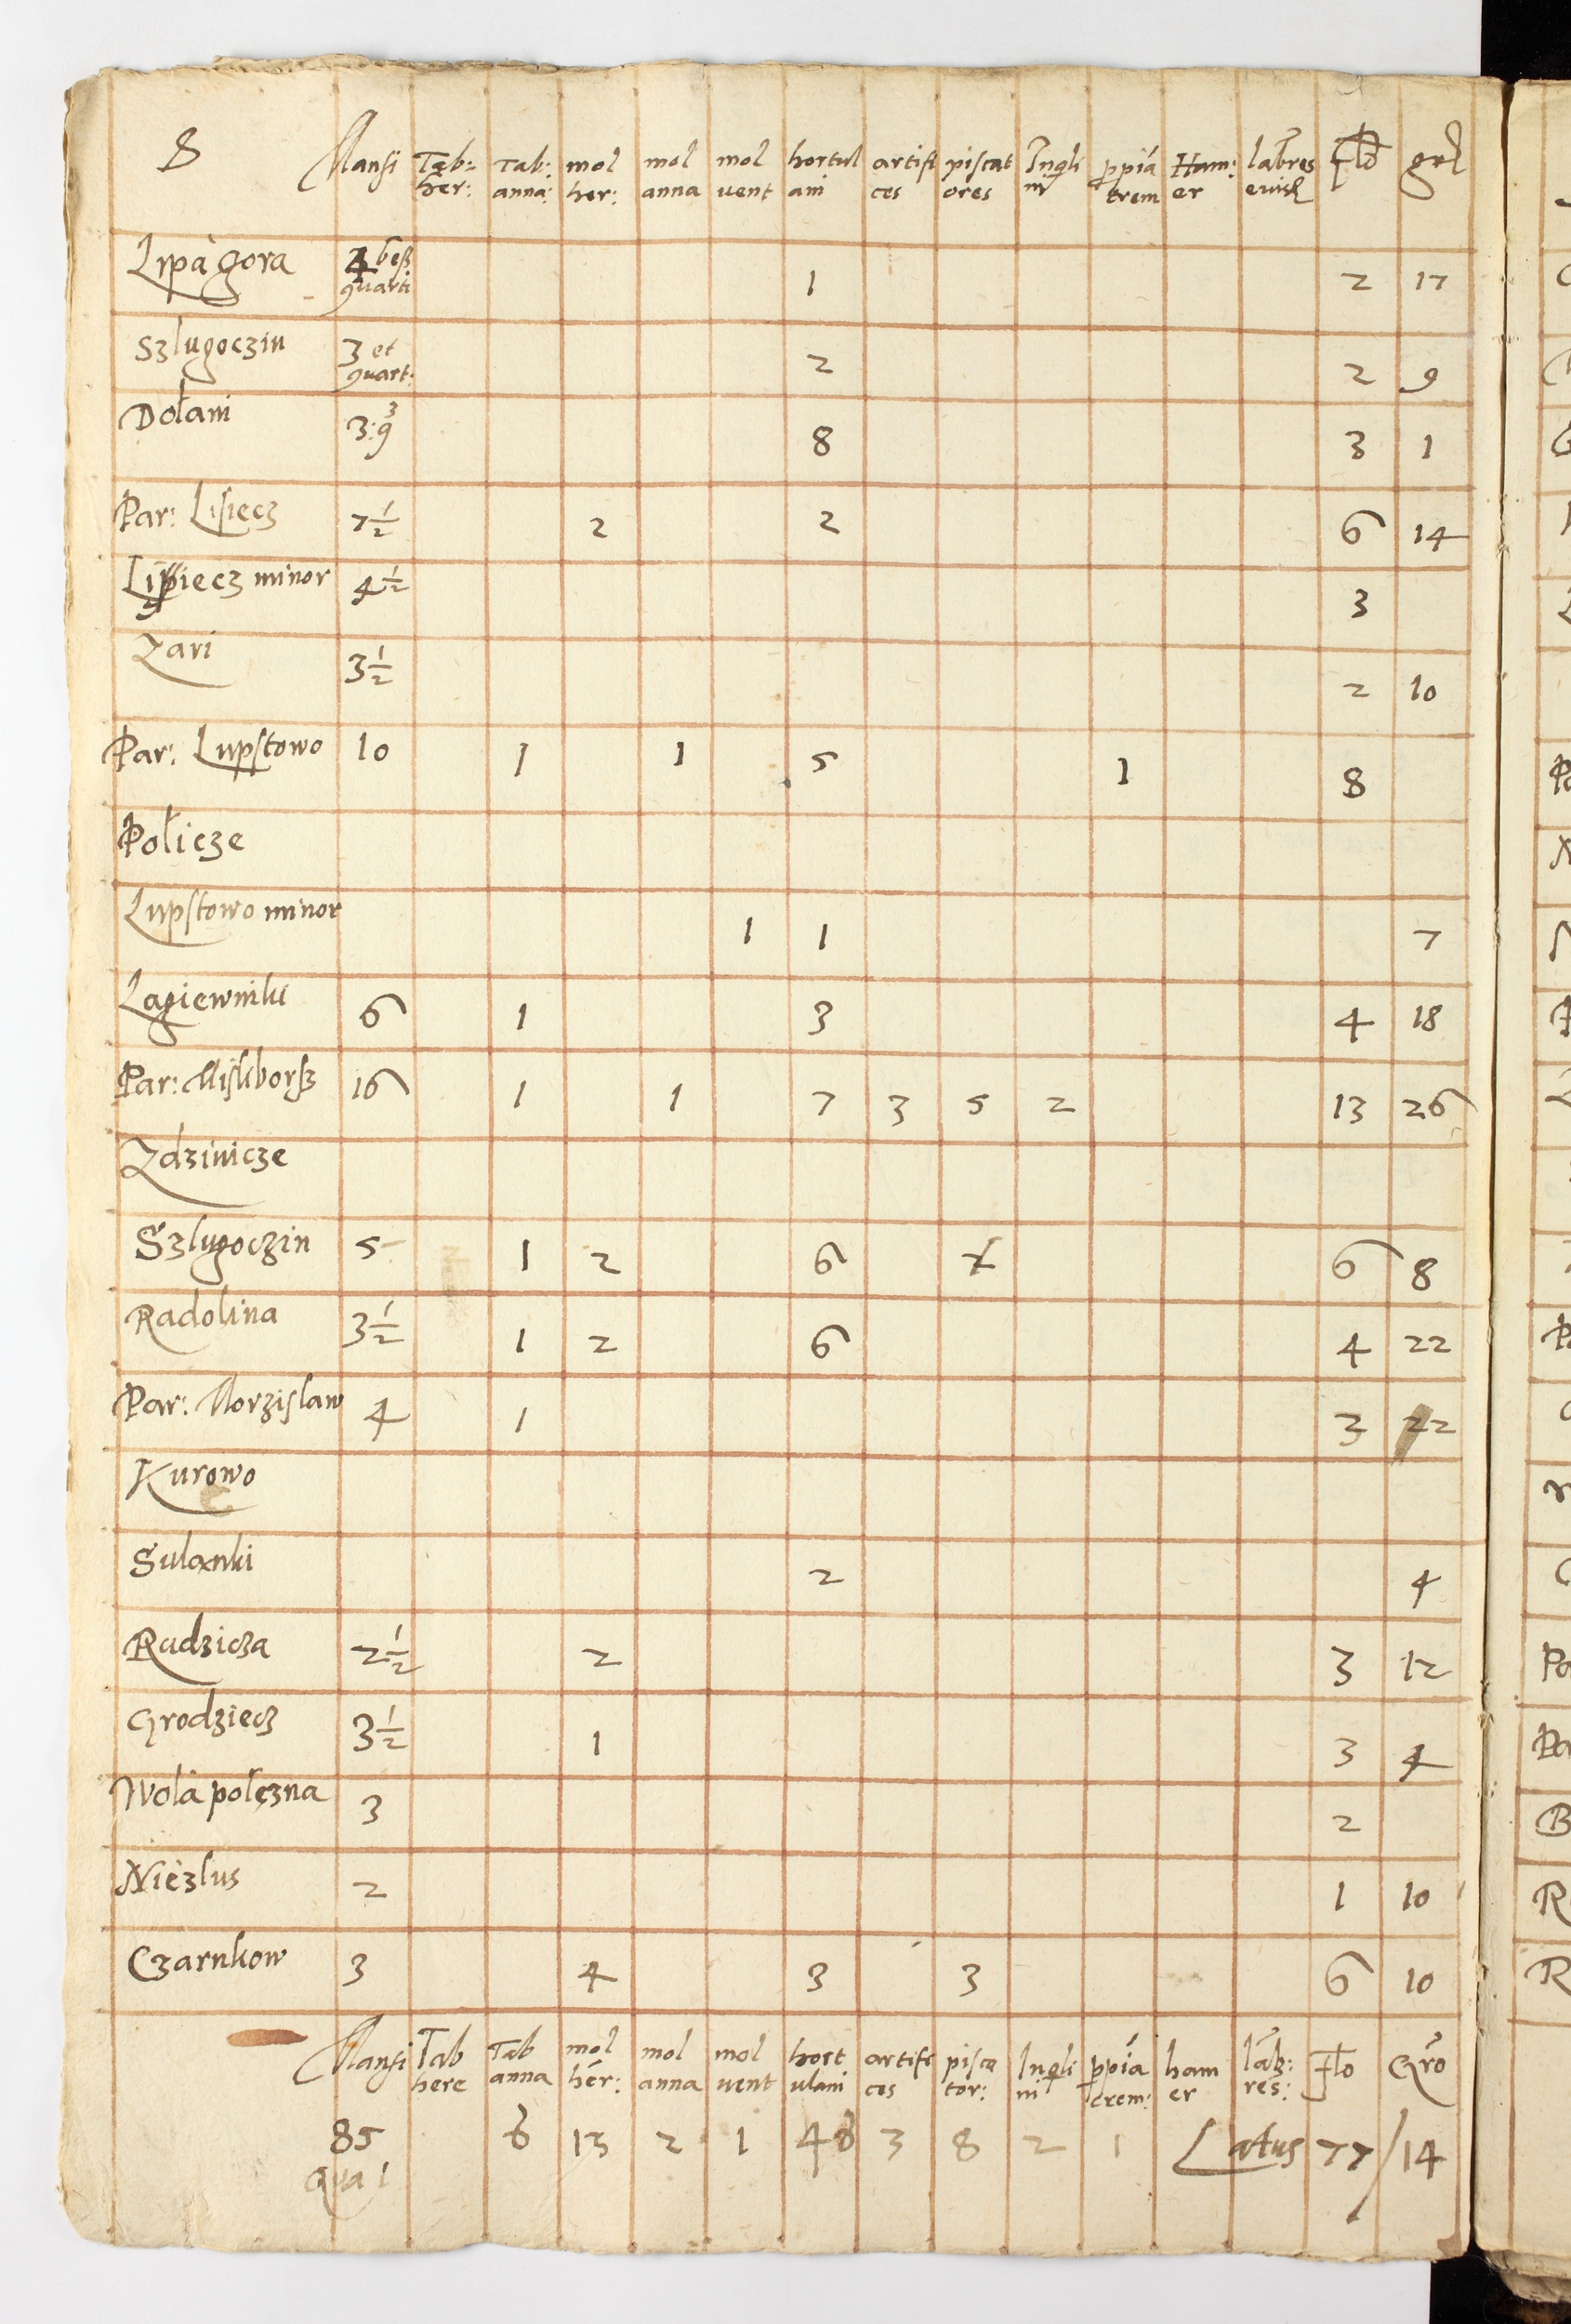 8 Mansi Tab: her: Tab: anna: mol her: mol anna mol vent hortul ani artifi ces piscat ores Inqli ni ppia trem Ham: er labres Flo grl
Lipagora 4 beß quarti 1 2 17
Szlugoczin 3 et quart: 2 2 9
Dolani 3: 3 q 8 3 1
Par: Lisiecz 7 1/2 2 2 6 14
Lisiecz minor 4 1/2 3
Zari 3 1/2 2 10
Par: Lupstowo 10 1 1 5 1 8
Policze
Lupstowo minor 1 1 7
Lagiewniki 6 1 3 4 18
Par: Misliborsz 16 1 1 7 3 5 2 13 26
Zdzinicze
Szlugoczin 5 1 2 6 6 8
Radolina 3 1/2 1 2 6 4 22
Par: Morzislaw 4 1 3 22
Kurowo
Sulanki 2 4
Rudzicza 2 1/2 2 3 12
Grodziecz 3 1/2 1 3 4
Wola polczna 3 2
Niezlus 2 1 10
Czarnkow 3 4 3 3 6 10
Mansi Tab here Tab anna mol her: mol anna mol vent hort ulani artifi ces pisca tor: Inqli ni ppia trem: ham er lab: res: Flo Gro
85 6 13 2 1 46 3 8 2 1 Latus 77/14
qua 1